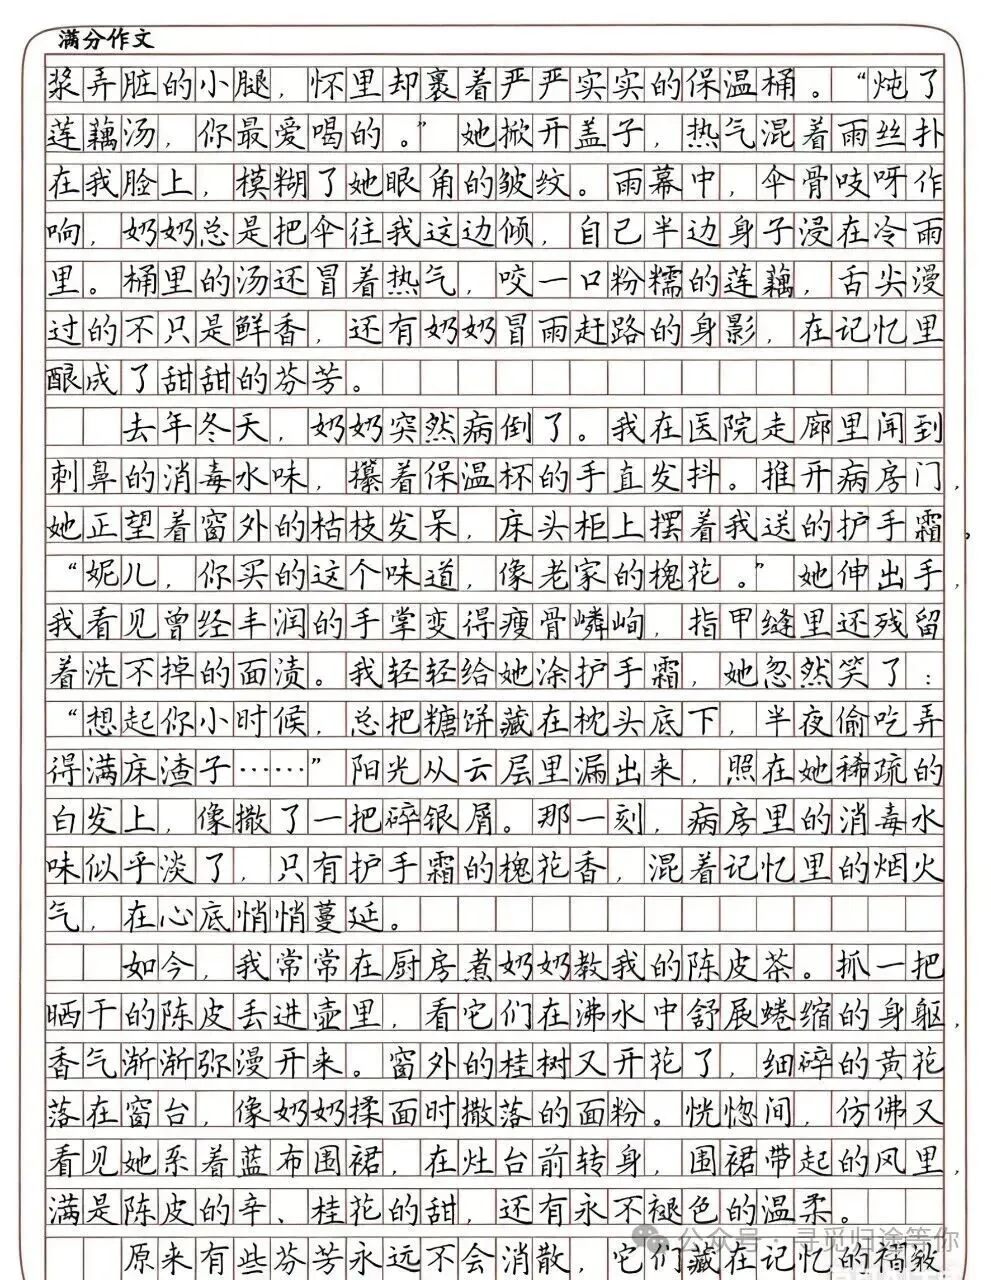 满分作文
浆弄脏的小腿，怀里却裹着严严实实的保温桶。“炖了
莲藕汤，你最爱喝的。”她掀开盖子，热气混着雨丝扑
在我脸上，模糊了她眼角的皱纹。雨幕中，伞骨吱呀作
响，奶奶总是把伞往我这边倾，自己半边身子浸在冷雨
里。桶里的汤还冒着热气，咬一口粉糯的莲藕，舌尖漫
过的不只是鲜香，还有奶奶冒雨赶路的身影，在记忆里
酿成了甜甜的芬芳。
去年冬天，奶奶突然病倒了。我在医院走廊里闻到
刺鼻的消毒水味，攥着保温杯的手直发抖。推开病房门，
她正望着窗外的枯枝发呆，床头柜上摆着我送的护手霜。
“妮儿，你买的这个味道，像老家的槐花。”她伸出手，
我看见曾经丰润的手掌变得瘦骨嶙峋，指甲缝里还残留
着洗不掉的面渍。我轻轻给她涂护手霜，她忽然笑了：
“想起你小时候，总把糖饼藏在枕头底下，半夜偷吃弄
得满床渣子……”阳光从云层里漏出来，照在她稀疏的
白发上，像撒了一把碎银屑。那一刻，病房里的消毒水
味似乎淡了，只有护手霜的槐花香，混着记忆里的烟火
气，在心底悄悄蔓延。
如今，我常常在厨房煮奶奶教我的陈皮茶。抓一把
晒干的陈皮丢进壶里，看它们在沸水中舒展蜷缩的身躯，
香气渐渐弥漫开来。窗外的桂树又开花了，细碎的黄花
落在窗台，像奶奶揉面时撒落的面粉。恍惚间，仿佛又
看见她系着蓝布围裙，在灶台前转身，围裙带起的风里，
满是陈皮的辛、桂花的甜，还有永不褪色的温柔。
原来有些芬芳永远不会消散，它们藏在记忆的褶皱
公众号·寻觅归途等你